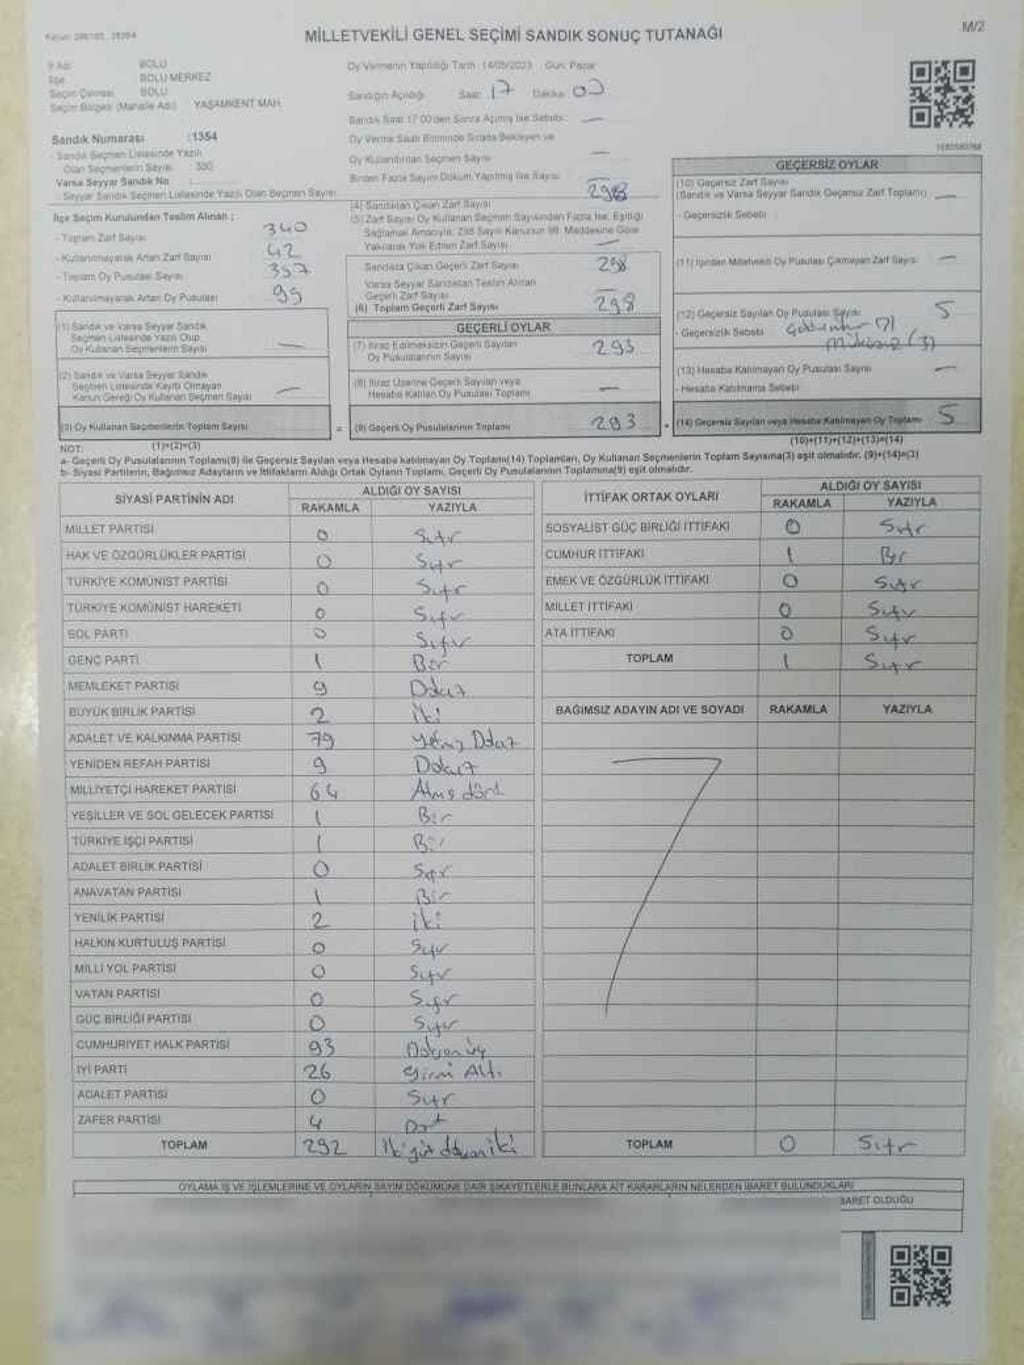 MİLLETVEKİLİ GENEL SEÇİMİ SANDIK SONUÇ TUTANAĞI
M/2
İl Adı BOLU
İlçe BOLU MERKEZ
Seçim Çevresi BOLU
Seçim Bölgesi (Mahalle Adı) YAŞAMKENT MAH.
Oy Vermenin Yapıldığı Tarih 14/05/2023 Gün: Pazar
Sandığın Açıldığı Saat 17 Dakika 00
Sandık Saat 17.00'den Sonra Açılmış İse Sebebi: —
Oy Verme Saati Bitiminde Sırada Bekleyen ve
Oy Kullandırılan Seçmen Sayısı —
Birden Fazla Sayım Döküm Yapılmış İse Sayısı
Sandık Numarası :1354
- Sandık Seçmen Listesinde Yazılı
Olan Seçmenlerin Sayısı : 330
Varsa Seyyar Sandık No :
- Seyyar Sandık Seçmen Listesinde Yazılı Olan Seçmen Sayısı
İlçe Seçim Kurulundan Teslim Alınan :
- Toplam Zarf Sayısı 340
- Kullanılmayarak Artan Zarf Sayısı 42
- Toplam Oy Pusulası Sayısı 357
- Kullanılmayarak Artan Oy Pusulası 99
(1) Sandık ve Varsa Seyyar Sandık
Seçmen Listesinde Yazılı Olup
Oy Kullanan Seçmenlerin Sayısı —
(2) Sandık ve Varsa Seyyar Sandık
Seçmen Listesinde Kayıtlı Olmayan
Kanun Gereği Oy Kullanan Seçmen Sayısı —
(3) Oy Kullanan Seçmenlerin Toplam Sayısı
(4) Sandıktan Çıkan Zarf Sayısı 298
(5) Zarf Sayısı Oy Kullanan Seçmen Sayısından Fazla İse, Eşitliği
Sağlamak Amacıyla, 298 Sayılı Kanunun 98. Maddesine Göre
Yakılarak Yok Edilen Zarf Sayısı —
Sandıkta Çıkan Geçerli Zarf Sayısı 298
Varsa Seyyar Sandıktan Teslim Alınan
Geçerli Zarf Sayısı
(6) Toplam Geçerli Zarf Sayısı 298
GEÇERLİ OYLAR
(7) İtiraz Edilmeksizin Geçerli Sayılan
Oy Pusulalarının Sayısı 293
(8) İtiraz Üzerine Geçerli Sayılan veya
Hesaba Katılan Oy Pusulası Toplamı —
= (9) Geçerli Oy Pusulalarının Toplamı 293
GEÇERSİZ OYLAR
(10) Geçersiz Zarf Sayısı
(Sandık ve Varsa Seyyar Sandık Geçersiz Zarf Toplamı) —
- Geçersizlik Sebebi
(11) İçinden Milletvekili Oy Pusulası Çıkmayan Zarf Sayısı —
(12) Geçersiz Sayılan Oy Pusulası Sayısı 5
- Geçersizlik Sebebi
(3)
(13) Hesaba Katılmayan Oy Pusulası Sayısı —
- Hesaba Katılmama Sebebi
(14) Geçersiz Sayılan veya Hesaba Katılmayan Oy Toplamı 5
NOT: (1)+(2)=(3) (10)+(11)+(12)+(13)=(14)
a- Geçerli Oy Pusulalarının Toplamı(9) ile Geçersiz Sayılan veya Hesaba katılmayan Oy Toplamı(14) Toplamları, Oy Kullanan Seçmenlerin Toplam Sayısına(3) eşit olmalıdır. (9)+(14)=(3)
b- Siyasi Partilerin, Bağımsız Adayların ve İttifakların Aldığı Ortak Oyların Toplamı, Geçerli Oy Pusulalarının Toplamına(9) eşit olmalıdır.
SİYASİ PARTİNİN ADI ALDIĞI OY SAYISI
RAKAMLA YAZIYLA
MİLLET PARTİSİ 0 Sıfır
HAK VE ÖZGÜRLÜKLER PARTİSİ 0 Sıfır
TÜRKİYE KOMÜNİST PARTİSİ 0 Sıfır
TÜRKİYE KOMÜNİST HAREKETİ 0 Sıfır
SOL PARTİ 0 Sıfır
GENÇ PARTİ 1 Bir
MEMLEKET PARTİSİ 9 Dokuz
BÜYÜK BİRLİK PARTİSİ 2 İki
ADALET VE KALKINMA PARTİSİ 79 Yetmiş Dokuz
YENİDEN REFAH PARTİSİ 9 Dokuz
MİLLİYETÇİ HAREKET PARTİSİ 64 Atmış dört
YEŞİLLER VE SOL GELECEK PARTİSİ 1 Bir
TÜRKİYE İŞÇİ PARTİSİ 1 Bir
ADALET BİRLİK PARTİSİ 0 Sıfır
ANAVATAN PARTİSİ 1 Bir
YENİLİK PARTİSİ 2 İki
HALKIN KURTULUŞ PARTİSİ 0 Sıfır
MİLLİ YOL PARTİSİ 0 Sıfır
VATAN PARTİSİ 0 Sıfır
GÜÇ BİRLİĞİ PARTİSİ 0 Sıfır
CUMHURİYET HALK PARTİSİ 93 Doksan üç
İYİ PARTİ 26 Yirmi Altı
ADALET PARTİSİ 0 Sıfır
ZAFER PARTİSİ 4 Dört
TOPLAM 292 İki yüz doksan iki
İTTİFAK ORTAK OYLARI ALDIĞI OY SAYISI
RAKAMLA YAZIYLA
SOSYALİST GÜÇ BİRLİĞİ İTTİFAKI 0 Sıfır
CUMHUR İTTİFAKI 1 Bir
EMEK VE ÖZGÜRLÜK İTTİFAKI 0 Sıfır
MİLLET İTTİFAKI 0 Sıfır
ATA İTTİFAKI 0 Sıfır
TOPLAM 1 Sıfır
BAĞIMSIZ ADAYIN ADI VE SOYADI RAKAMLA YAZIYLA
TOPLAM 0 Sıfır
OYLAMA İŞ VE İŞLEMLERİNE VE OYLARIN SAYIM DÖKÜMÜNE DAİR ŞİKAYETLERLE BUNLARA AİT KARARLARIN NELERDEN İBARET BULUNDUKLARI
BARET OLDUĞU